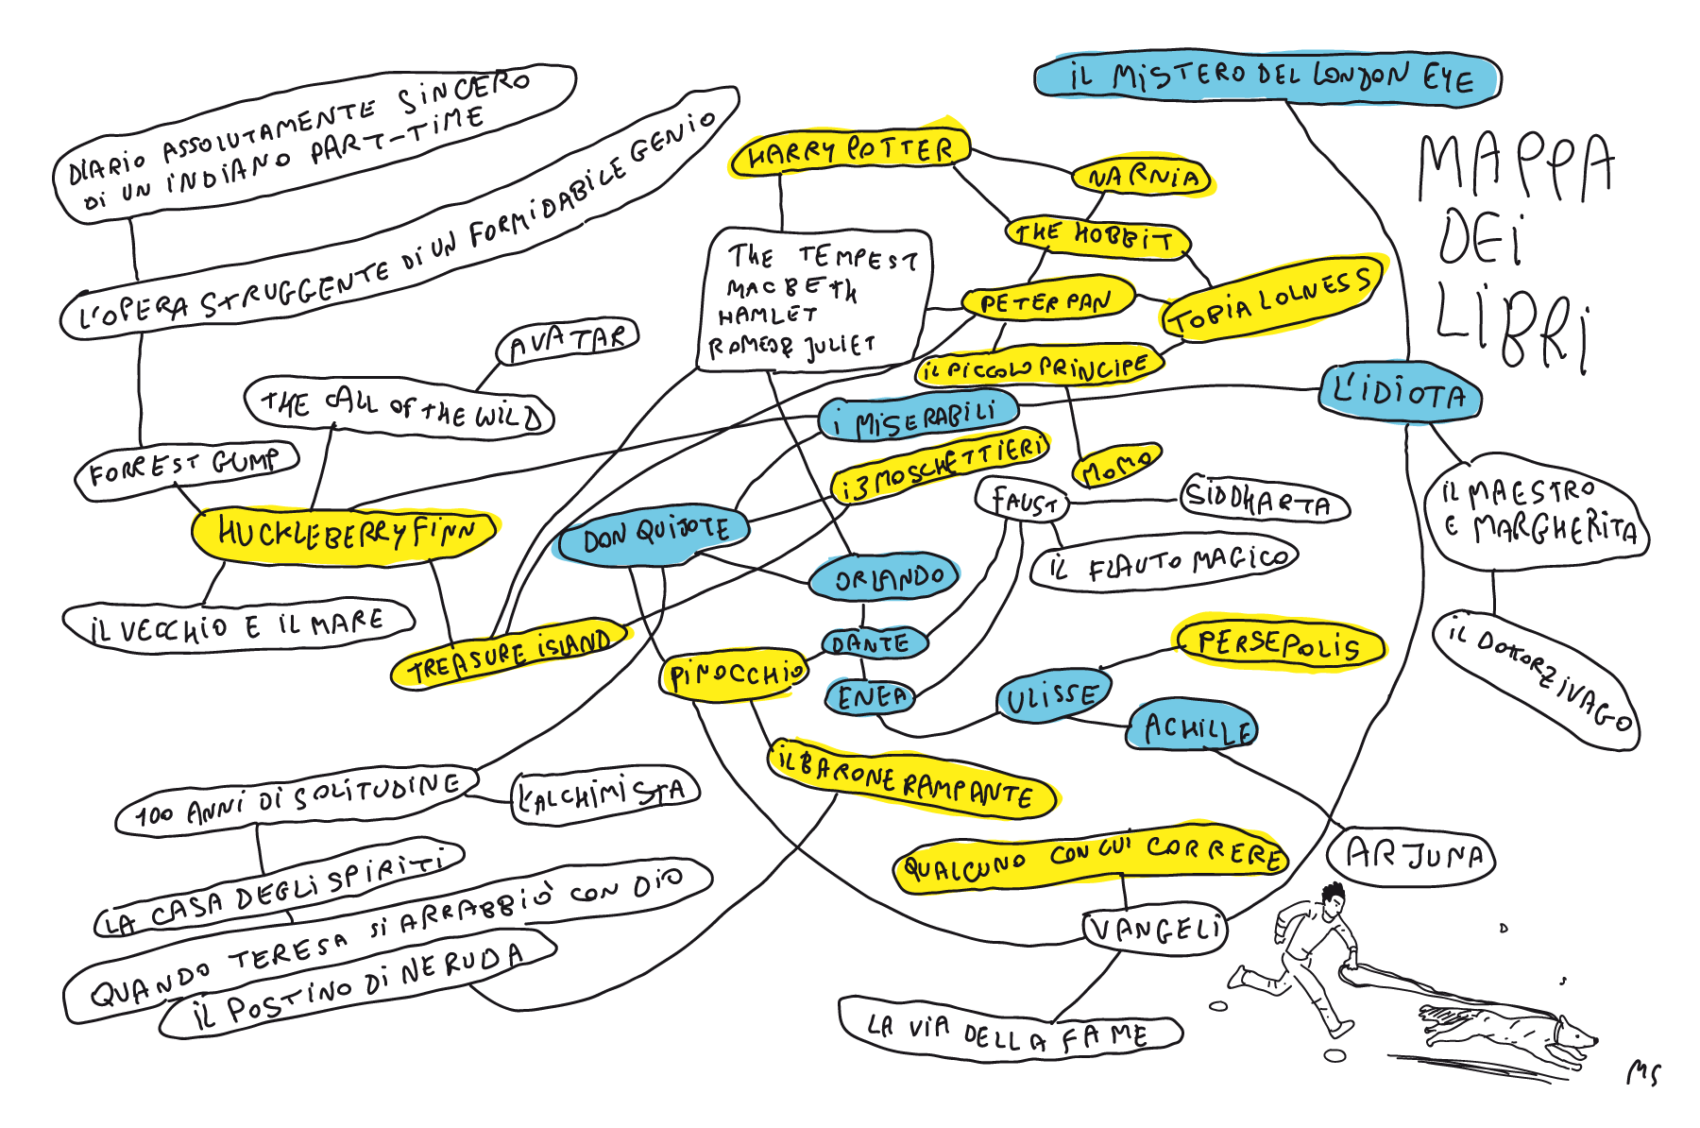 MAPPA
DEI
LIBRI
IL MISTERO DEL LONDON EYE
DIARIO ASSOLUTAMENTE SINCERO
DI UN INDIANO PART-TIME
L'OPERA STRUGGENTE DI UN FORMIDABILE GENIO
HARRY POTTER
NARNIA
THE HOBBIT
THE TEMPEST
MACBETH
HAMLET
ROMEO & JULIET
PETER PAN
TOBIA LOLNESS
AVATAR
THE CALL OF THE WILD
IL PICCOLO PRINCIPE
L'IDIOTA
I MISERABILI
FORREST GUMP
I 3 MOSCHETTIERI
MOMO
FAUST
SIDDHARTA
IL MAESTRO
E MARGHERITA
HUCKLEBERRY FINN
DON QUIJOTE
IL FLAUTO MAGICO
ORLANDO
IL VECCHIO E IL MARE
TREASURE ISLAND
DANTE
PERSEPOLIS
PINOCCHIO
ENEA
ULISSE
ACHILLE
IL DOTTOR ZIVAGO
IL BARONE RAMPANTE
100 ANNI DI SOLITUDINE
L'ALCHIMISTA
QUALCUNO CON CUI CORRERE
ARJUNA
LA CASA DEGLI SPIRITI
QUANDO TERESA SI ARRABBIÒ CON DIO
IL POSTINO DI NERUDA
VANGELI
LA VIA DELLA FAME
D
S
MS